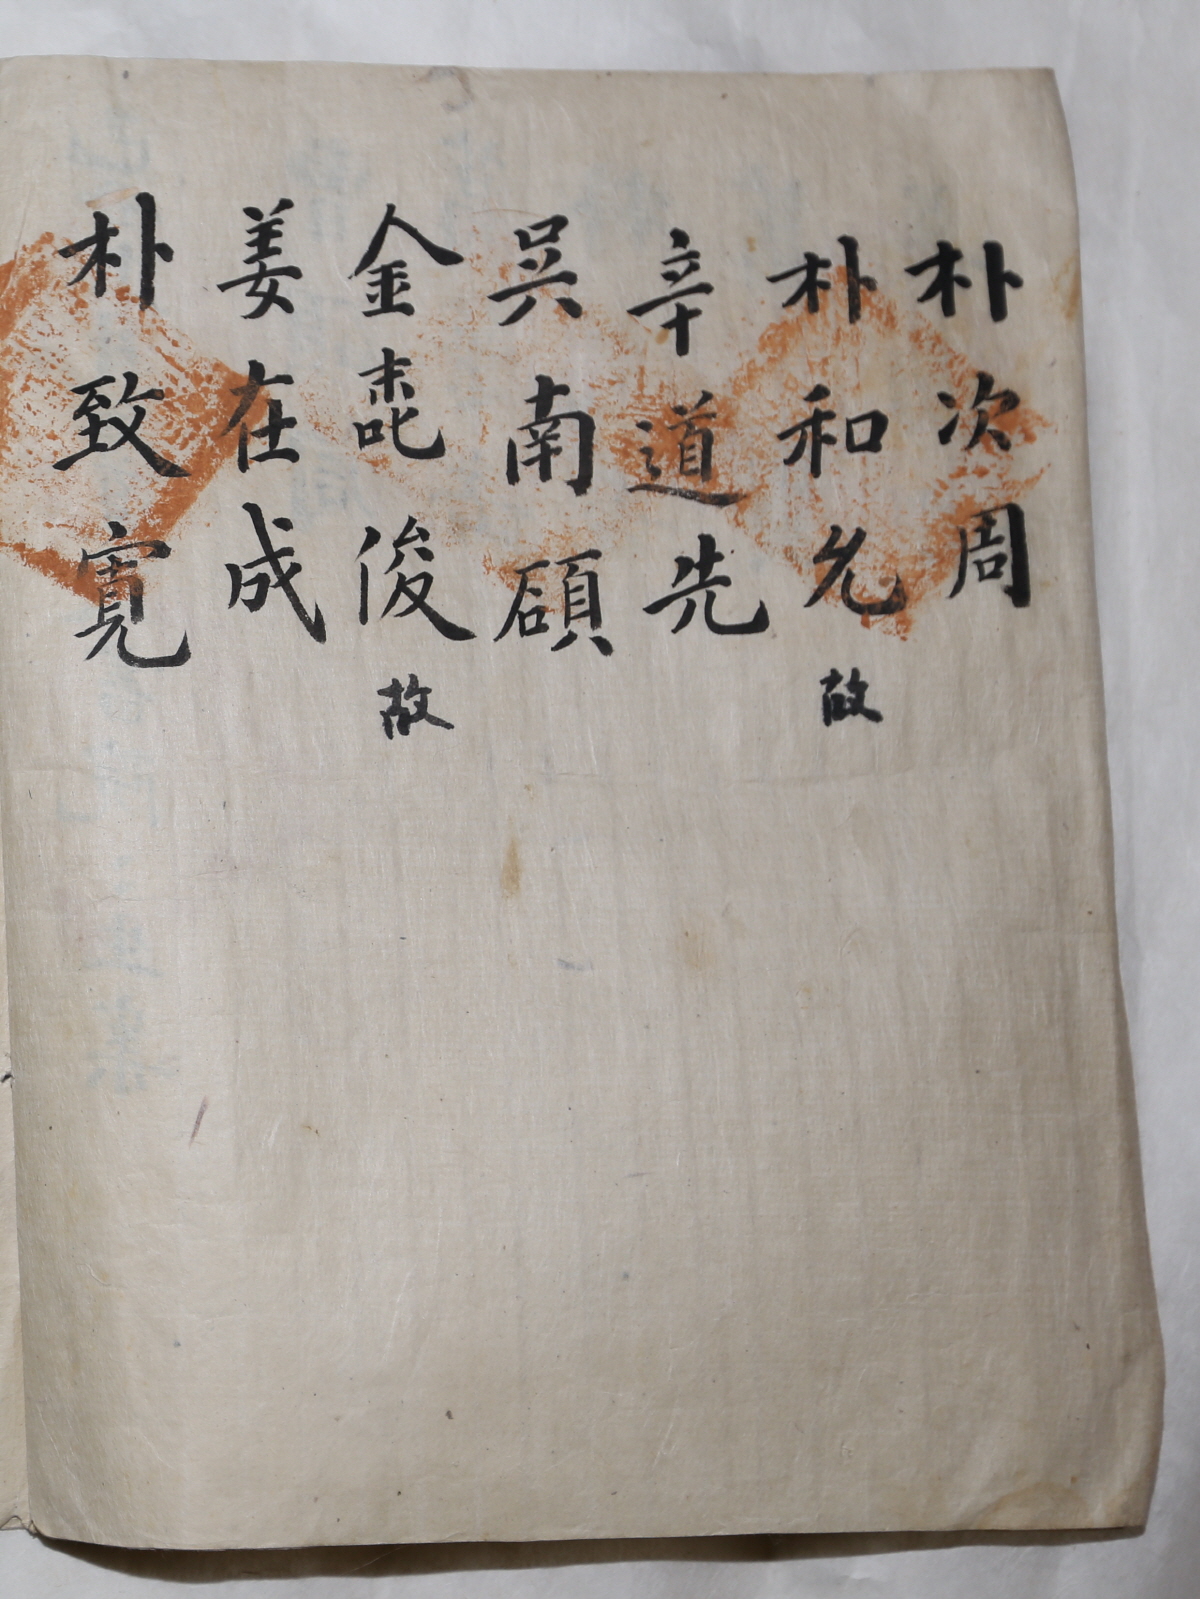 朴次周
朴和允 故
辛道先
吳南碩
金唜俊 故
姜在成
朴致寬